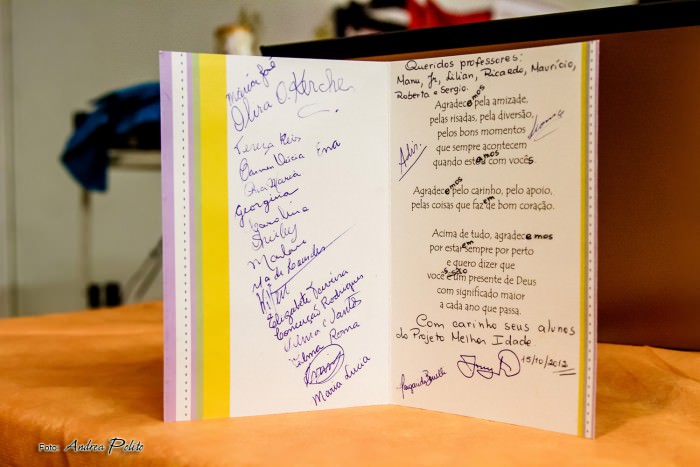 Olira O. Kerche
Tereza Reis
Ena
Ana Maria
Georgina
Carolina
Shirley
Marlene
Mª de Lourdes
Elizabete Teixeira
Conceição Rodrigues
Vilma S Santos
Zilma Roma
Maria Lucia
Queridos professores:
Manu, Jr, Lilian, Ricardo, Maurício,
Roberta e Sergio.
Agradecemos pela amizade,
pelas risadas, pela diversão,
pelos bons momentos
que sempre acontecem
quando estamos com vocês.
Agradecemos pelo carinho, pelo apoio,
pelas coisas que fazem de bom coração.
Acima de tudo, agradecemos
por estarem sempre por perto
e quero dizer que
vocês são um presente de Deus
com significado maior
a cada ano que passa.
Com carinho seus alunos
do Projeto Melhor Idade.
15/10/2012
Foto: Andrea Pelik